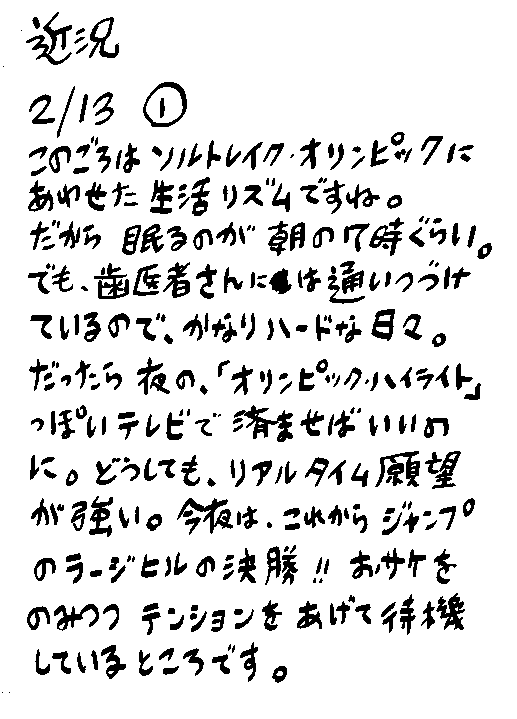 近況
2/13 ①
このごろはソルトレイク・オリンピックに
あわせた生活リズムですね。
だから眠るのが朝の7時ぐらい。
でも、歯医者さんには通いつづけ
ているので、かなりハードな日々。
だったら夜の、「オリンピック・ハイライト」
っぽいテレビで済ませばいいの
に。どうしても、リアルタイム願望
が強い。今夜は、これからジャンプ
のラージヒルの決勝!! おサケを
のみつつテンションをあげて待機
しているところです。